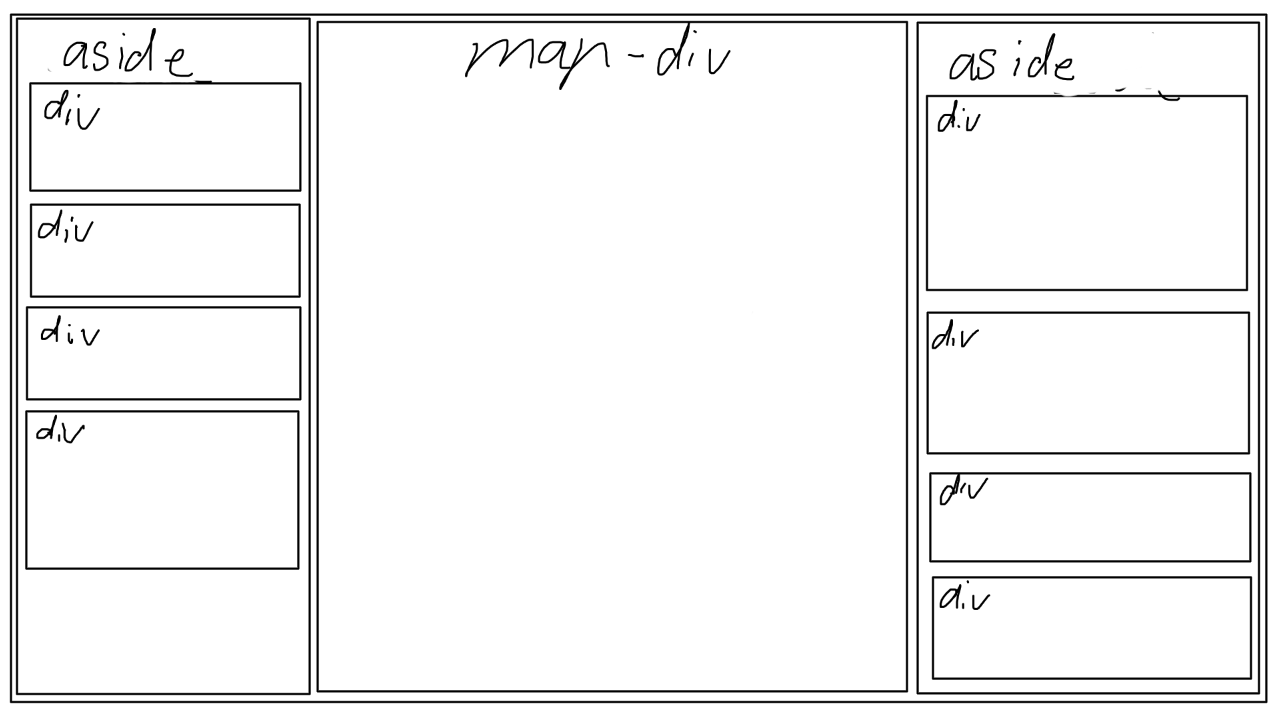 aside
div
div
div
div
map-div
aside
div
div
div
div